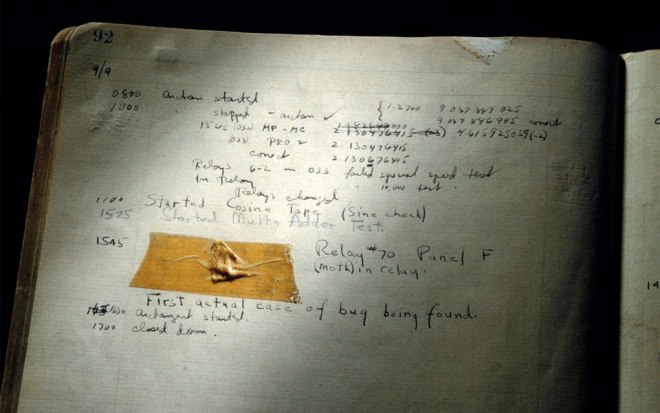 92
9/9
0800 Antan started
1000 " stopped - antan ✓ { 1.2700 9.037 847 025
9.037 846 995 correct
13"uc (032) MP-MC 1.982647000 2.130476415 (-3) 4.615925059(-2)
(033) PRO 2 2.130476415
correct 2.130676415
Relays 6-2 in 033 failed special speed test
In Relay " 10,000 test.
Relays changed
1100 Started Cosine Tape (Sine check)
1525 Started Mult+Adder Test.
1545 Relay #70 Panel F
(Moth) in relay.
First actual case of bug being found.
1630 Antangent started.
1700 closed down.
14